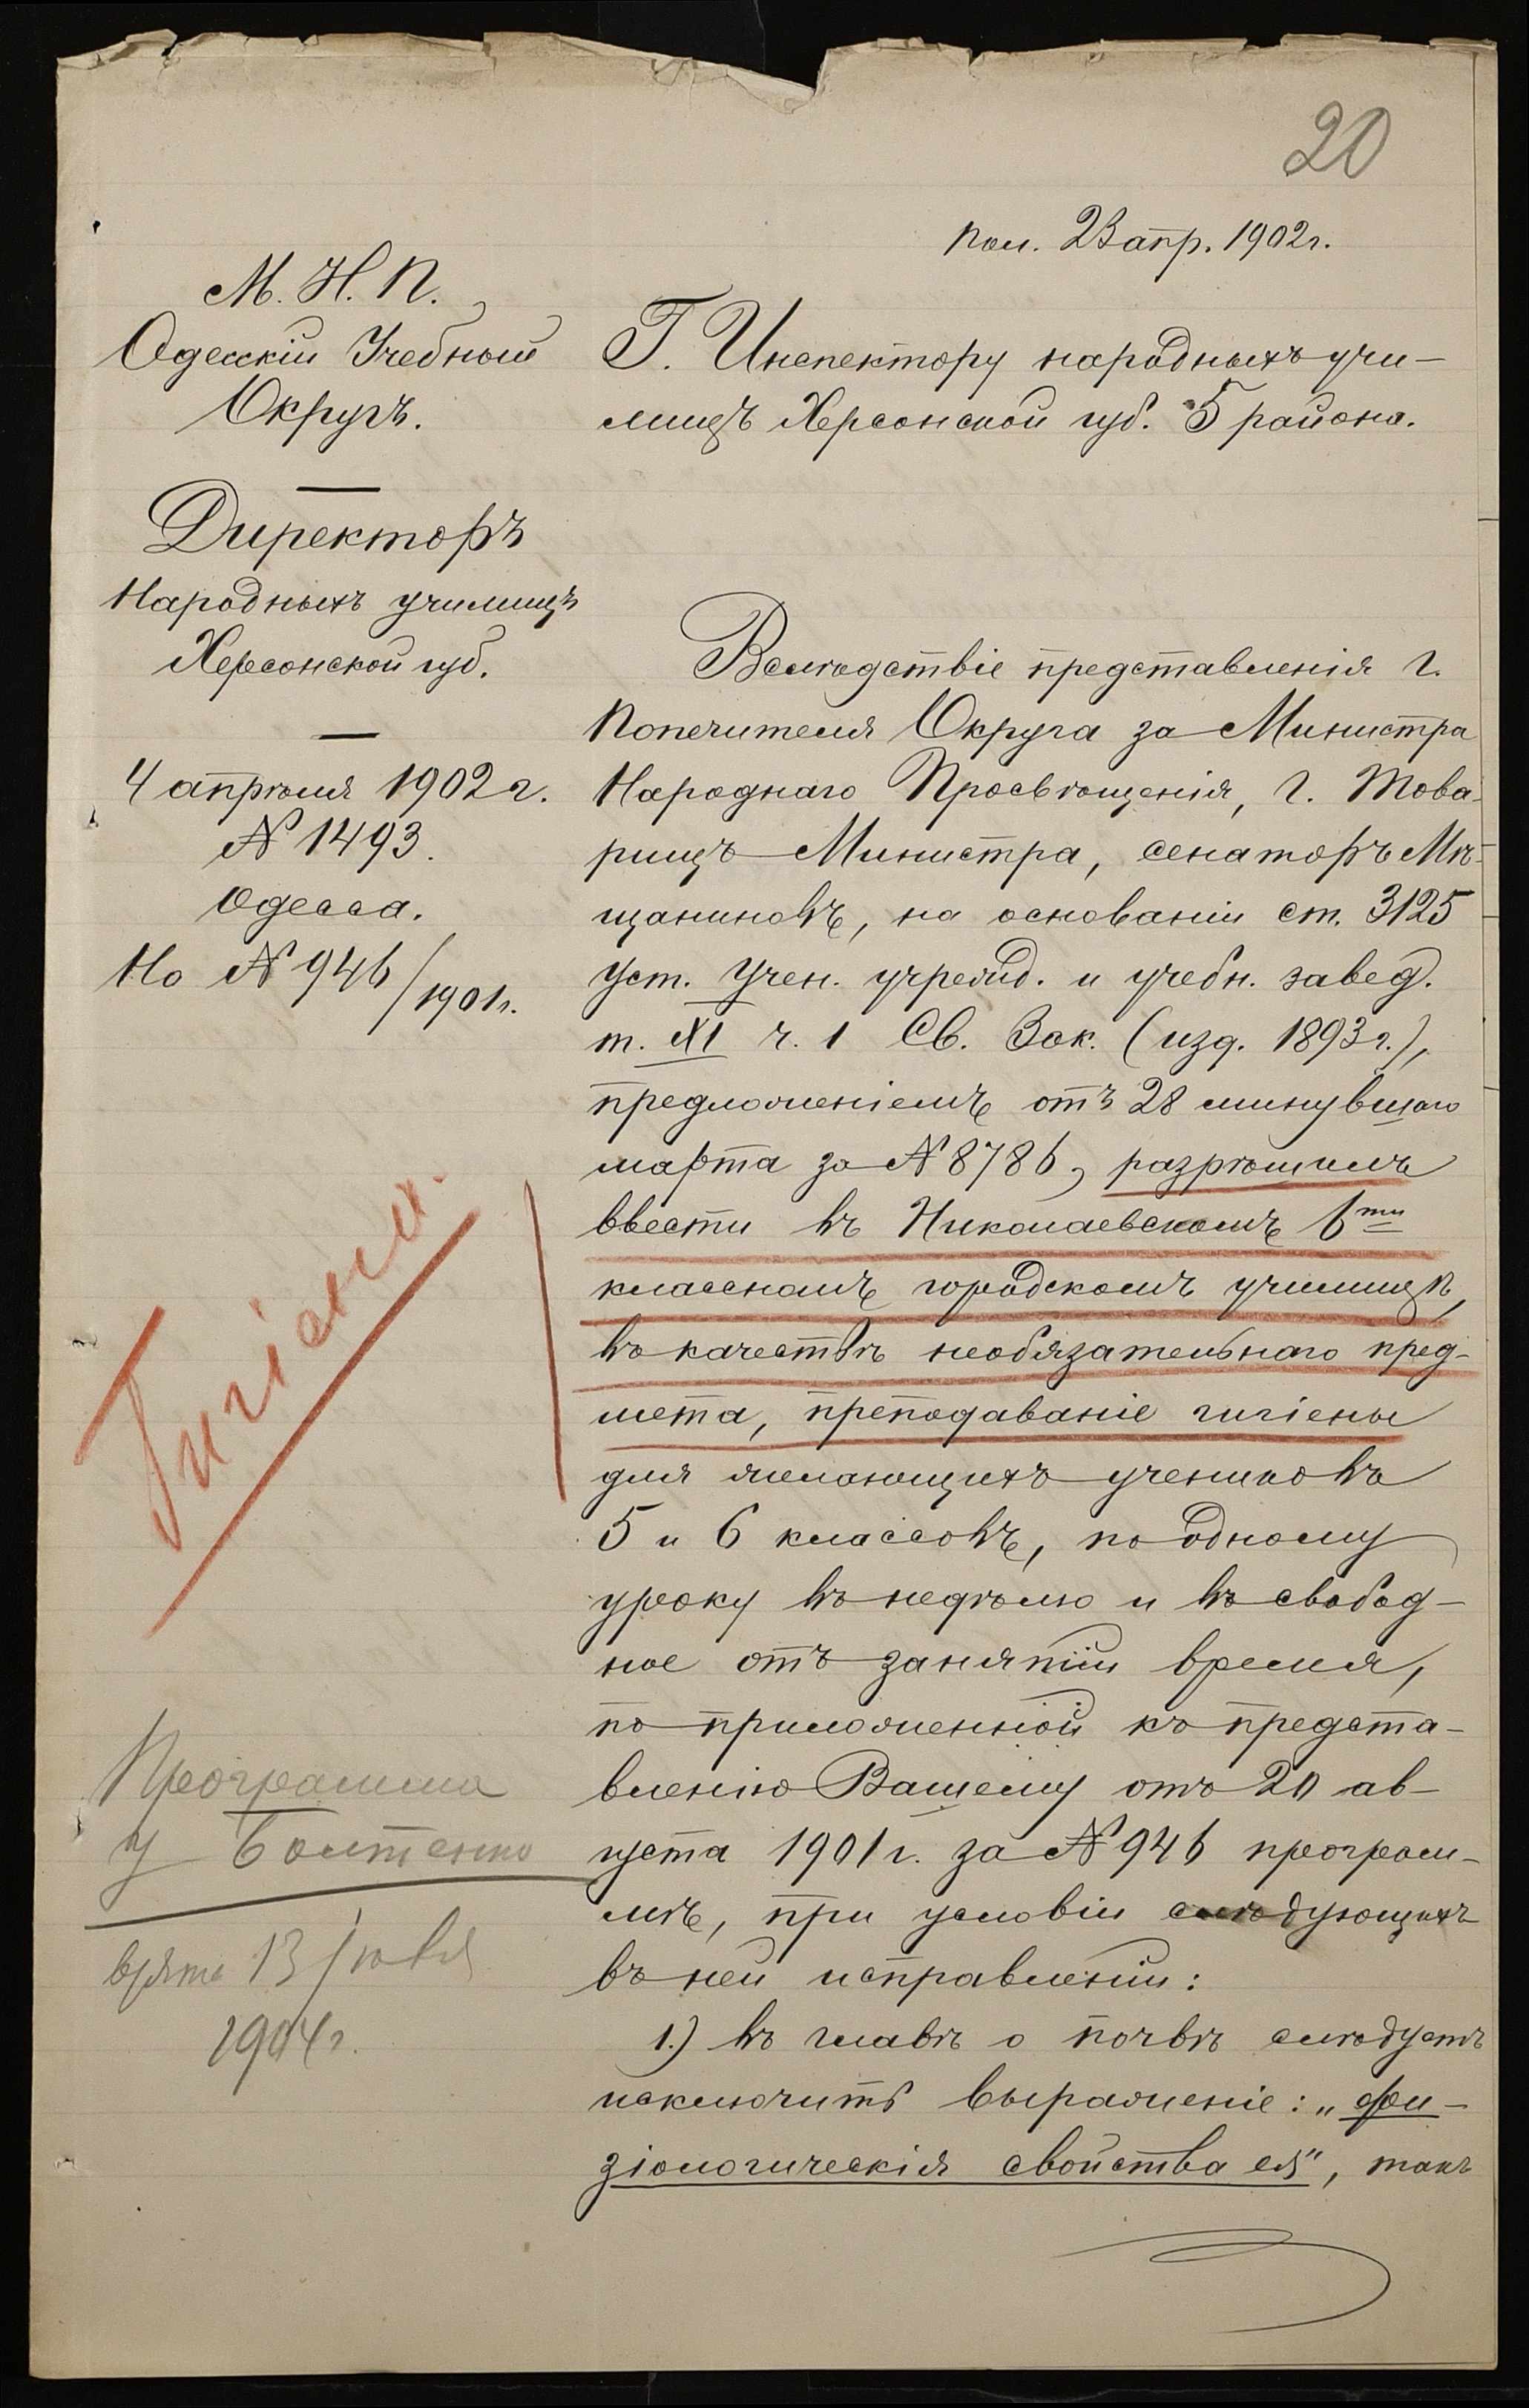 20
пол. 23 апр. 1902 г.
М. Н. П.
Одесскій Учебный
Округъ.
Директоръ
Народныхъ училищъ
Херсонской губ.
4 апрѣля 1902 г.
№ 1493.
Одесса.
На № 946/1901 г.
Гигіена.
Программа
у Болтенко
взята 13 іюня
1904 г.
Г. Инспектору народныхъ учи-
лищъ Херсонской губ. 5 района.
Вслѣдствіе представленія г.
Попечителя Округа за Министра
Народнаго Просвѣщенія, г. Това-
рищъ Министра, сенаторъ Мѣ-
щаниновъ, на основаніи ст. 3125
уст. учен. учрежд. и учебн. завед.
т. XI ч. 1 Св. Зак. (изд. 1893 г.),
предложеніемъ отъ 28 минувшаго
марта за № 8786, разрѣшилъ
ввести въ Николаевскомъ 6ти
классномъ городскомъ училищѣ,
въ качествѣ необязательнаго пред-
мета, преподаваніе гигіены
для желающихъ учениковъ
5 и 6 классовъ, по одному
уроку въ недѣлю и въ свобод-
ное отъ занятій время,
по приложенной къ предста-
вленію Вашему отъ 20 ав-
густа 1901 г. за № 946 програм-
мѣ, при условіи слѣдующихъ
въ ней исправленій:
1.) въ главѣ о почвѣ слѣдуетъ
исключить выраженіе: „фи-
зіологическія свойства ея", такъ